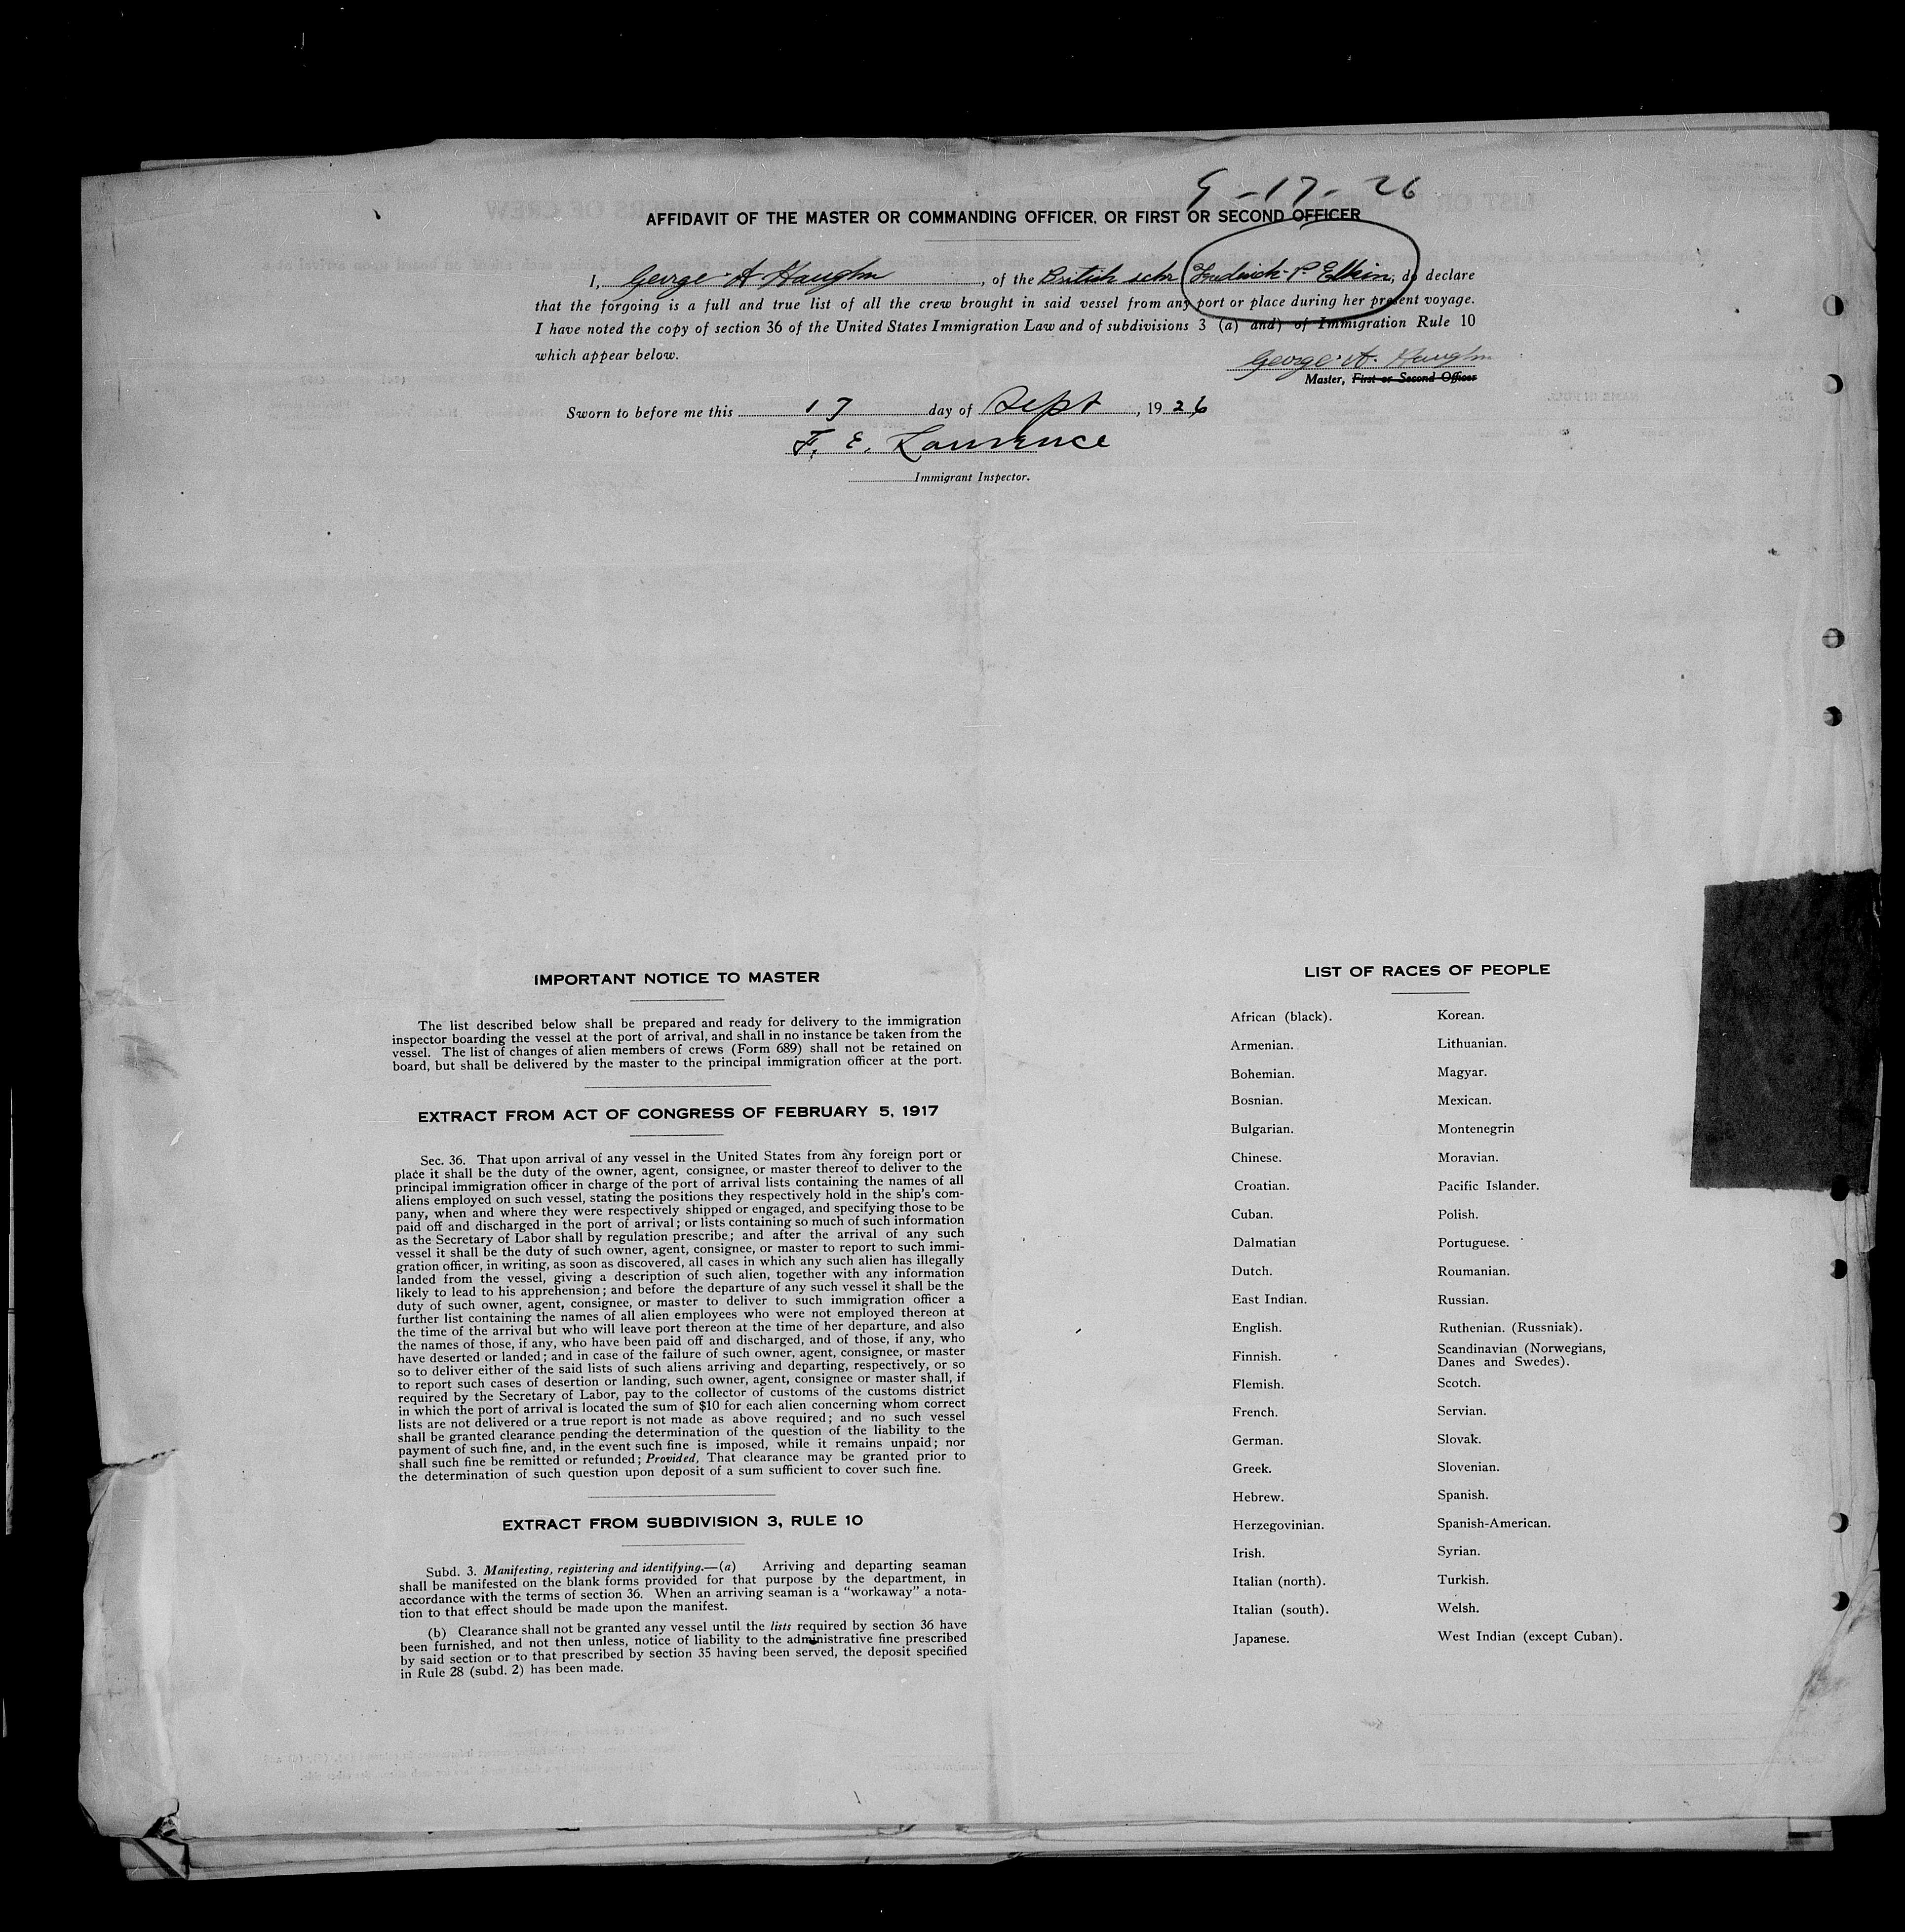 9-17-26
AFFIDAVIT OF THE MASTER OR COMMANDING OFFICER, OR FIRST OR SECOND OFFICER
I, George A Haughn, of the British schr Frederick P. Elkin, do declare
that the forgoing is a full and true list of all the crew brought in said vessel from any port or place during her present voyage.
I have noted the copy of section 36 of the United States Immigration Law and of subdivisions 3 (a) and) of Immigration Rule 10
which appear below.
George A. Haughn
Master, First or Second Officer
Sworn to before me this 17 day of Sept, 1926
F. E. Lawrence
Immigrant Inspector.
IMPORTANT NOTICE TO MASTER
The list described below shall be prepared and ready for delivery to the immigration
inspector boarding the vessel at the port of arrival, and shall in no instance be taken from the
vessel. The list of changes of alien members of crews (Form 689) shall not be retained on
board, but shall be delivered by the master to the principal immigration officer at the port.
EXTRACT FROM ACT OF CONGRESS OF FEBRUARY 5, 1917
Sec. 36. That upon arrival of any vessel in the United States from any foreign port or
place it shall be the duty of the owner, agent, consignee, or master thereof to deliver to the
principal immigration officer in charge of the port of arrival lists containing the names of all
aliens employed on such vessel, stating the positions they respectively hold in the ship's com-
pany, when and where they were respectively shipped or engaged, and specifying those to be
paid off and discharged in the port of arrival; or lists containing so much of such information
as the Secretary of Labor shall by regulation prescribe; and after the arrival of any such
vessel it shall be the duty of such owner, agent, consignee, or master to report to such immi-
gration officer, in writing, as soon as discovered, all cases in which any such alien has illegally
landed from the vessel, giving a description of such alien, together with any information
likely to lead to his apprehension; and before the departure of any such vessel it shall be the
duty of such owner, agent, consignee, or master to deliver to such immigration officer a
further list containing the names of all alien employees who were not employed thereon at
the time of the arrival but who will leave port thereon at the time of her departure, and also
the names of those, if any, who have been paid off and discharged, and of those, if any, who
have deserted or landed; and in case of the failure of such owner, agent, consignee, or master
so to deliver either of the said lists of such aliens arriving and departing, respectively, or so
to report such cases of desertion or landing, such owner, agent, consignee or master shall, if
required by the Secretary of Labor, pay to the collector of customs of the customs district
in which the port of arrival is located the sum of $10 for each alien concerning whom correct
lists are not delivered or a true report is not made as above required; and no such vessel
shall be granted clearance pending the determination of the question of the liability to the
payment of such fine, and, in the event such fine is imposed, while it remains unpaid; nor
shall such fine be remitted or refunded; Provided, That clearance may be granted prior to
the determination of such question upon deposit of a sum sufficient to cover such fine.
EXTRACT FROM SUBDIVISION 3, RULE 10
Subd. 3. Manifesting, registering and identifying.—(a) Arriving and departing seaman
shall be manifested on the blank forms provided for that purpose by the department, in
accordance with the terms of section 36. When an arriving seaman is a "workaway" a nota-
tion to that effect should be made upon the manifest.
(b) Clearance shall not be granted any vessel until the lists required by section 36 have
been furnished, and not then unless, notice of liability to the administrative fine prescribed
by said section or to that prescribed by section 35 having been served, the deposit specified
in Rule 28 (subd. 2) has been made.
LIST OF RACES OF PEOPLE
African (black).
Armenian.
Bohemian.
Bosnian.
Bulgarian.
Chinese.
Croatian.
Cuban.
Dalmatian
Dutch.
East Indian.
English.
Finnish.
Flemish.
French.
German.
Greek.
Hebrew.
Herzegovinian.
Irish.
Italian (north).
Italian (south).
Japanese.
Korean.
Lithuanian.
Magyar.
Mexican.
Montenegrin
Moravian.
Pacific Islander.
Polish.
Portuguese.
Roumanian.
Russian.
Ruthenian. (Russniak).
Scandinavian (Norwegians,
Danes and Swedes).
Scotch.
Servian.
Slovak.
Slovenian.
Spanish.
Spanish-American.
Syrian.
Turkish.
Welsh.
West Indian (except Cuban).